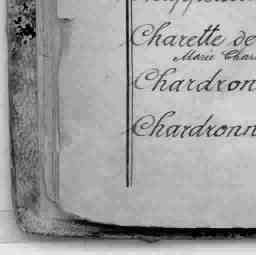 Charette de
Marie Char
Chardron
Chardronn